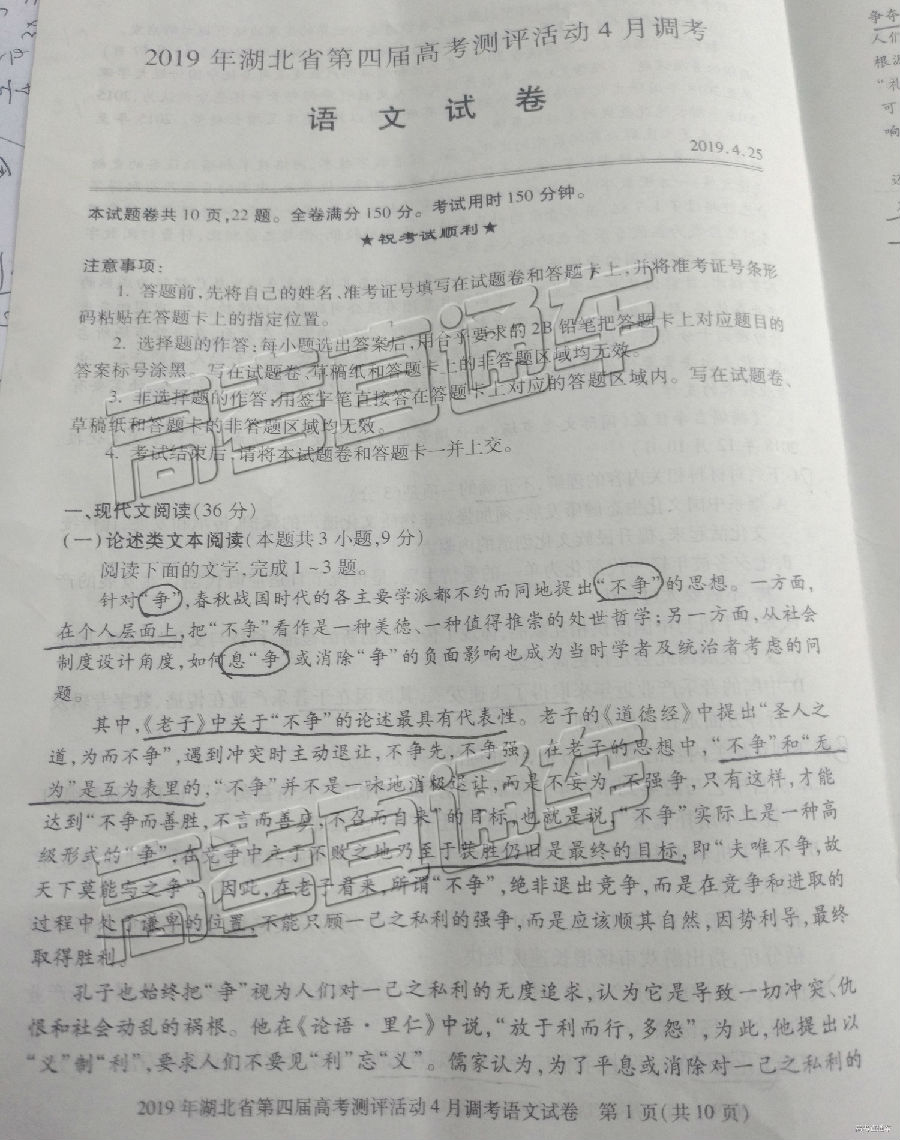 2019年湖北省第四届高考测评活动4月调考
语文试卷
2019.4.25
本试题卷共10页,22题。全卷满分150分。考试用时150分钟。
★祝考试顺利★
注意事项:
1. 答题前,先将自己的姓名、准考证号填写在试题卷和答题卡上,并将准考证号条形
码粘贴在答题卡上的指定位置。
2. 选择题的作答:每小题选出答案后,用合乎要求的2B铅笔把答题卡上对应题目的
答案标号涂黑。写在试题卷、草稿纸和答题卡上的非答题区域均无效。
3. 非选择题的作答:用签字笔直接答在答题卡上对应的答题区域内。写在试题卷、
草稿纸和答题卡的非答题区域均无效。
4. 考试结束后,请将本试题卷和答题卡一并上交。
高考直通车
一、现代文阅读(36分)
(一)论述类文本阅读(本题共3小题,9分)
阅读下面的文字,完成1~3题。
针对“争”,春秋战国时代的各主要学派都不约而同地提出“不争”的思想。一方面,
在个人层面上,把“不争”看作是一种美德、一种值得推崇的处世哲学;另一方面,从社会
制度设计角度,如何息“争”或消除“争”的负面影响也成为当时学者及统治者考虑的问
题。
其中,《老子》中关于“不争”的论述最具有代表性。老子的《道德经》中提出“圣人之
道,为而不争”,遇到冲突时主动退让,不争先,不争强。在老子的思想中,“不争”和“无
为”是互为表里的,“不争”并不是一味地消极退让,而是不妄为,不强争,只有这样,才能
达到“不争而善胜,不言而善应,不召而自来”的目标,也就是说,“不争”实际上是一种高
级形式的“争”,在竞争中立于不败之地乃至于获胜仍旧是最终的目标,即“夫唯不争,故
天下莫能与之争”。因此,在老子看来,所谓“不争”,绝非退出竞争,而是在竞争和进取的
过程中处于谦卑的位置,不能只顾一己之私利的强争,而是应该顺其自然,因势利导,最终
取得胜利。
高考直通车
孔子也始终把“争”视为人们对一己之私利的无度追求,认为它是导致一切冲突、仇
恨和社会动乱的祸根。他在《论语·里仁》中说,“放于利而行,多怨”,为此,他提出以
“义”制“利”,要求人们不要见“利”忘“义”。儒家认为,为了平息或消除对一己之私利的
2019年湖北省第四届高考测评活动4月调考语文试卷 第1页(共10页)
争夺
人们
根源
“礼
可
响